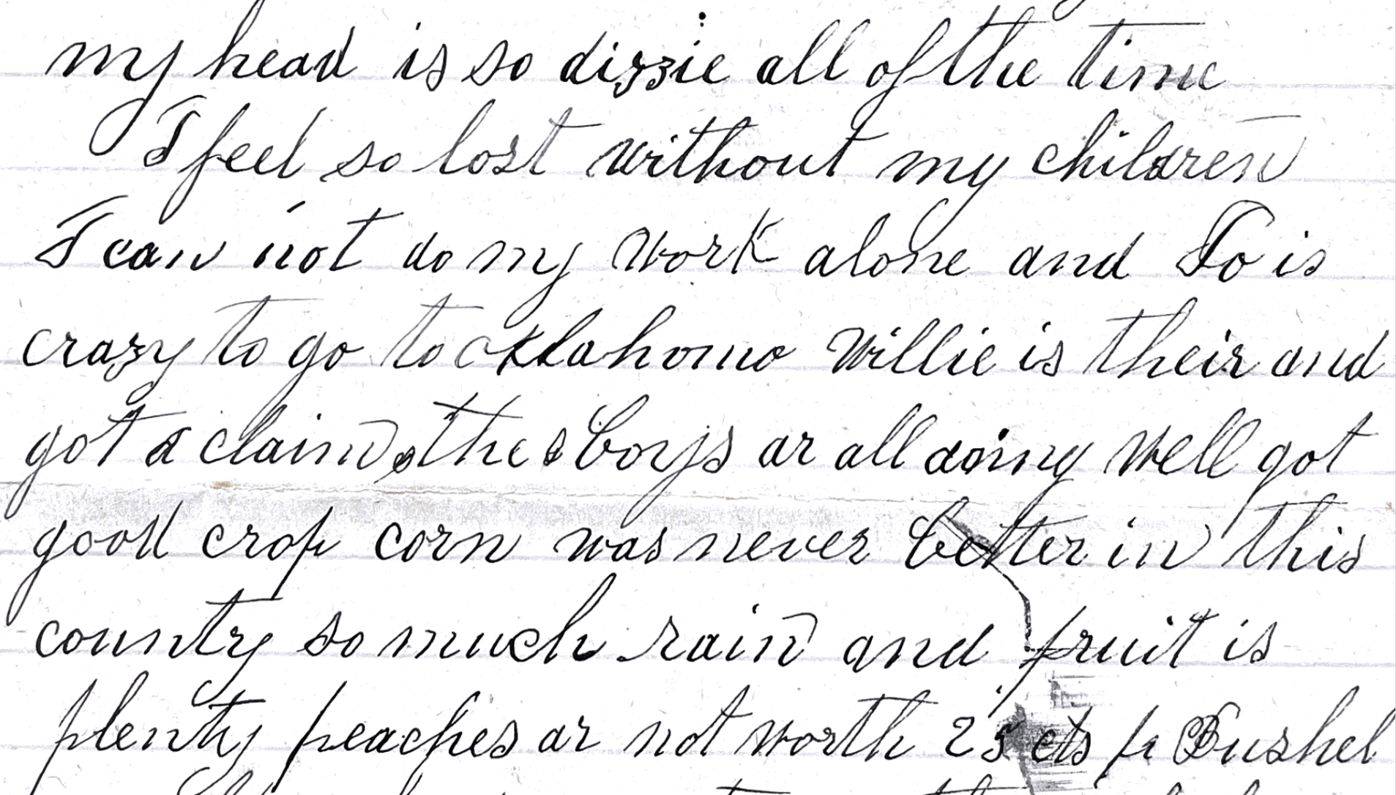 my head is so dizzie all of the time
I feel so lost without my children
I can not do my work alone and Jo is
crazy to go to oklahomo Willie is their and
got a claim the boys ar all doing well got
good crop corn was never better in this
country so much rain and fruit is
plenty peaches ar not worth 25 cts pr Bushel